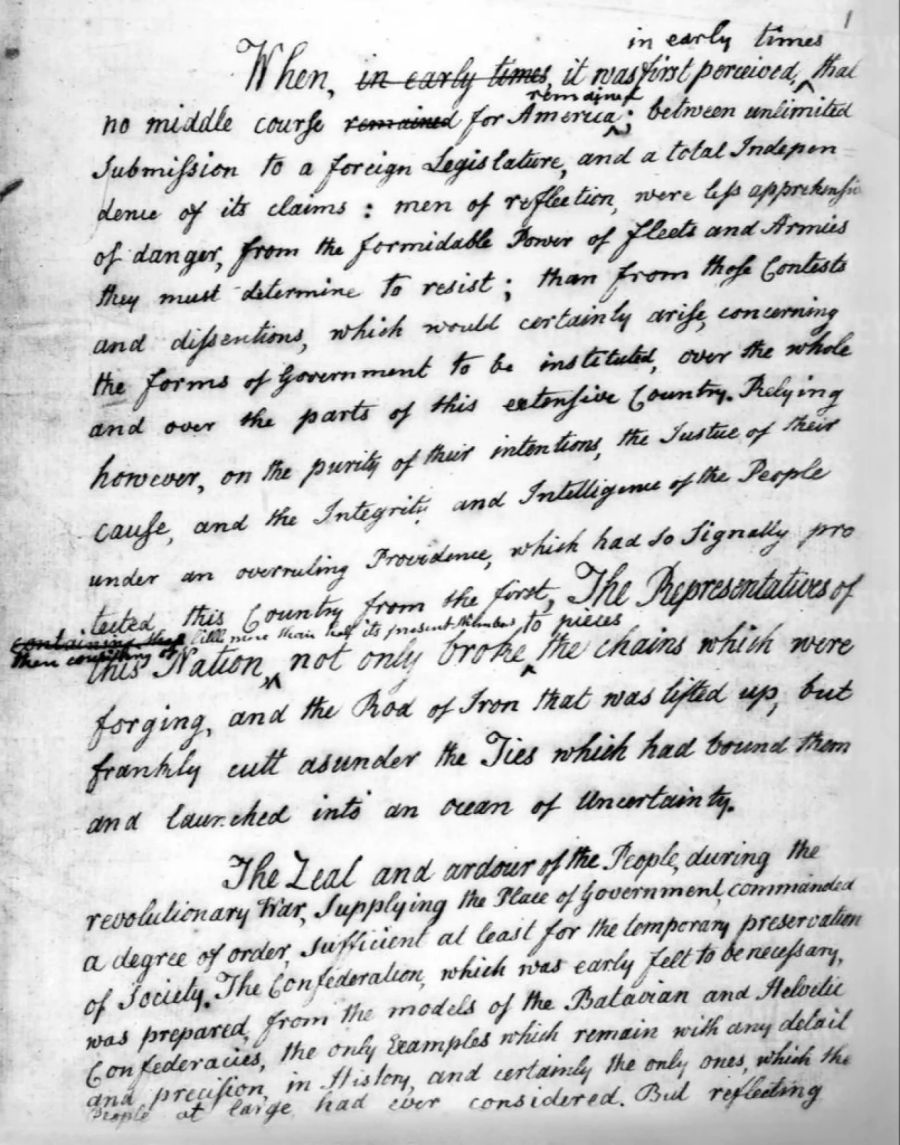 1
in early times
When, in early times, it was first perceived, that
remained
no middle course remained for America; between unlimited
Submission to a foreign Legislature, and a total Indepen=
dence of its claims: men of reflection, were less apprehensive
of danger, from the formidable Power of fleets and Armies
they must determine to resist; than from those Contests
and dissentions, which would certainly arise, concerning
the forms of Government to be instituted, over the whole
and over the parts of this extensive Country. Relying
however, on the purity of their intentions, the Justice of their
cause, and the Integrity and Intelligence of the People
under an overruling Providence, which had so Signally pro
tected this Country from the first, The Representatives of
containing then little more than half its present Numbers, to pieces
then consisting of
this Nation, not only broke the chains which were
forging, and the Rod of Iron that was lifted up, but
frankly cutt asunder the Ties which had bound them
and launched into an ocean of Uncertainty.
The Zeal and ardour of the People, during the
revolutionary War, Supplying the Place of Government, commanded
a degree of order, sufficient at least for the temporary preservation
of Society. The Confederation, which was early felt to be necessary,
was prepared, from the models of the Batavian and Helvetic
Confederacies, the only Examples which remain with any detail
and precision, in History, and certainly the only ones, which the
People at large had ever considered. But reflecting